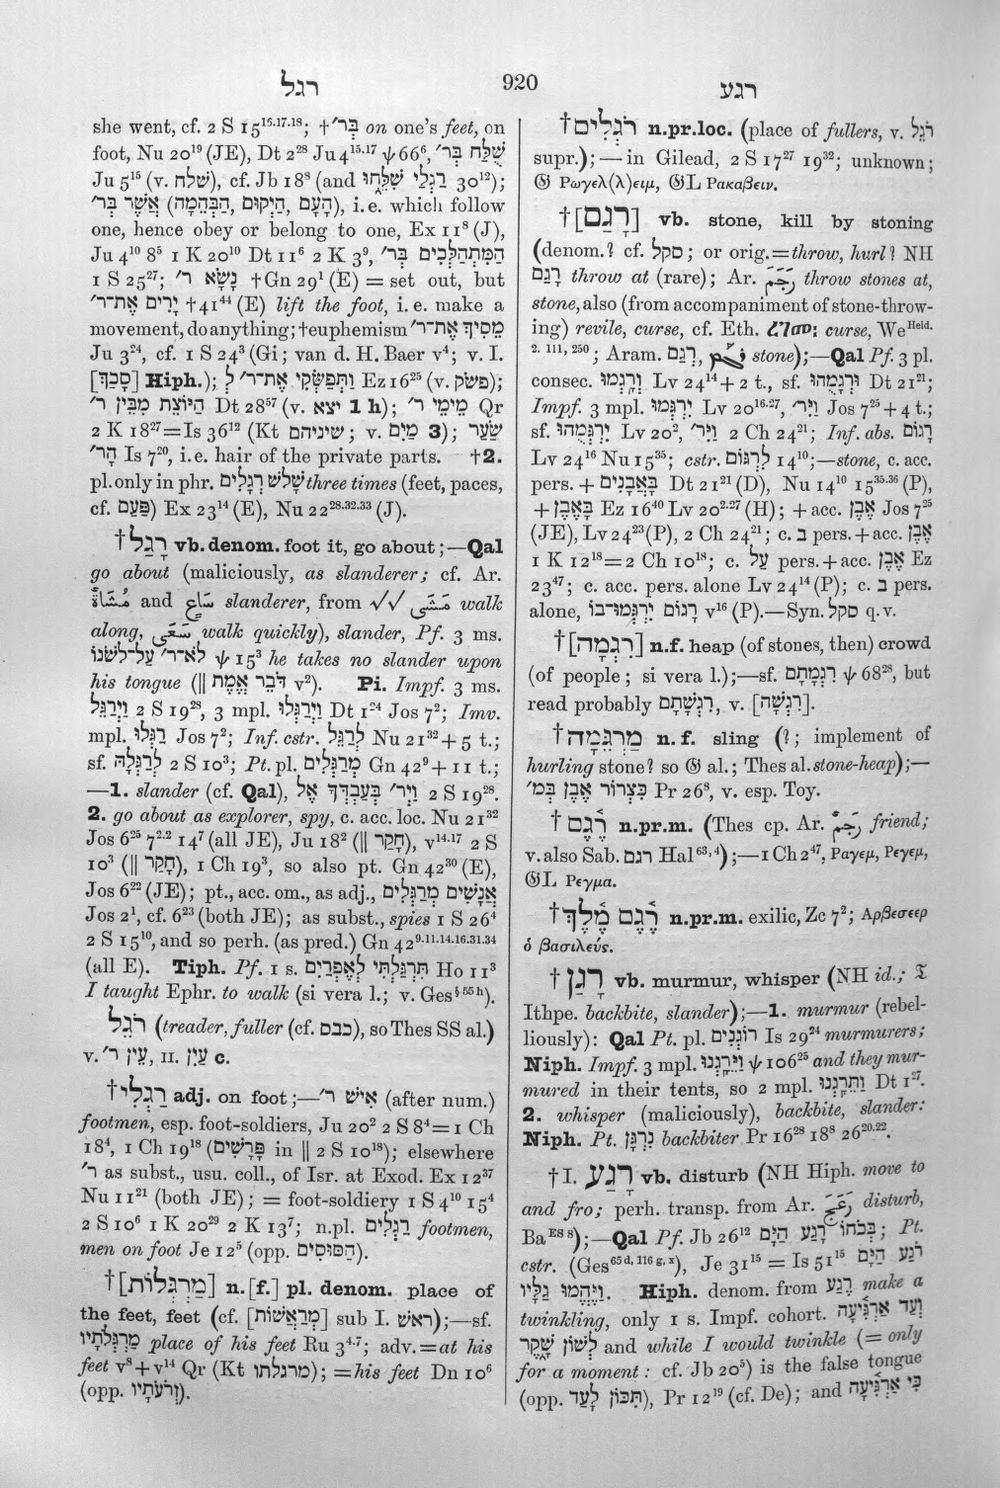 רגל
920
רגע
she went, cf. 2 S 15¹⁶·¹⁷·¹⁸; †בְּר׳ on one's feet, on
foot, Nu 20¹⁹ (JE), Dt 2²⁸ Ju 4¹⁵·¹⁷ ψ 66⁶, שֻׁלַּח בְּר׳
Ju 5¹⁵ (v. שׁלח), cf. Jb 18⁸ (and רַגְלַי שִׁלֵּחוּ 30¹²);
אֲשֶׁר בְּר׳ (הָעָם, הַיְקוּם, הַבְּהֵמָה), i.e. which follow
one, hence obey or belong to one, Ex 11⁸ (J),
Ju 4¹⁰ 8⁵ 1 K 20¹⁰ Dt 11⁶ 2 K 3⁹, הַמִּתְהַלְּכִים בְּר׳
1 S 25²⁷; נָשָׂא ר׳ †Gn 29¹ (E) = set out, but
יָרִים אֶת־ר׳ †41⁴⁴ (E) lift the foot, i. e. make a
movement, do anything; †euphemism מֵסִיךְ אֶת־ר׳
Ju 3²⁴, cf. 1 S 24³ (Gi; van d. H. Baer v⁴; v. I.
[סָכַךְ] Hiph.); וַתְּפַשְּׂקִי אֶת־ר׳ לְ Ez 16²⁵ (v. פשׂק);
הַיּוֹצֵת מִבֵּין ר׳ Dt 28⁵⁷ (v. יצא 1 h); מֵימֵי ר׳ Qr
2 K 18²⁷ = Is 36¹² (Kt שיניהם; v. מַיִם 3); שַׂעַר
הָר׳ Is 7²⁰, i.e. hair of the private parts. †2.
pl. only in phr. שָׁלשׁ רְגָלִים three times (feet, paces,
cf. פַּעַם) Ex 23¹⁴ (E), Nu 22²⁸·³²·³³ (J).
†רָגַל vb. denom. foot it, go about;—Qal
go about (maliciously, as slanderer; cf. Ar.
مَشَّاءٌ and سَاعٍ slanderer, from √√ مَشَى walk
along, سَعَى walk quickly), slander, Pf. 3 ms.
לֹא־ר׳ עַל־לְשֹׁנוֹ ψ 15³ he takes no slander upon
his tongue (‖ דֹּבֵר אֱמֶת v²). Pi. Impf. 3 ms.
וַיְרַגֵּל 2 S 19²⁸, 3 mpl. וַיְרַגְּלוּ Dt 1²⁴ Jos 7²; Imv.
mpl. רַגְּלוּ Jos 7²; Inf. cstr. לְרַגֵּל Nu 21³² + 5 t.;
sf. לְרַגְּלָהּ 2 S 10³; Pt. pl. מְרַגְּלִים Gn 42⁹ + 11 t.;
—1. slander (cf. Qal), וַיְר׳ בְּעַבְדְּךָ אֶל 2 S 19²⁸.
2. go about as explorer, spy, c. acc. loc. Nu 21³²
Jos 6²⁵ 7²·² 14⁷ (all JE), Ju 18² (‖ חָקַר), v¹⁴·¹⁷ 2 S
10³ (‖ חָקַר), 1 Ch 19³, so also pt. Gn 42³⁰ (E),
Jos 6²² (JE); pt., acc. om., as adj., אֲנָשִׁים מְרַגְּלִים
Jos 2¹, cf. 6²³ (both JE); as subst., spies 1 S 26⁴
2 S 15¹⁰, and so perh. (as pred.) Gn 42⁹·¹¹·¹⁴·¹⁶·³¹·³⁴
(all E). Tiph. Pf. 1 s. תִּרְגַּלְתִּי לְאֶפְרַיִם Ho 11³
I taught Ephr. to walk (si vera l.; v. Ges§ 55 h).
רֹגֵל (treader, fuller (cf. כבס), so Thes SS al.)
v. עֵין ר׳, II. עַיִן c.
†רַגְלִי adj. on foot;—אִישׁ ר׳ (after num.)
footmen, esp. foot-soldiers, Ju 20² 2 S 8⁴ = 1 Ch
18⁴, 1 Ch 19¹⁸ (פָּרָשִׁים in ‖ 2 S 10¹⁸); elsewhere
ר׳ as subst., usu. coll., of Isr. at Exod. Ex 12³⁷
Nu 11²¹ (both JE); = foot-soldiery 1 S 4¹⁰ 15⁴
2 S 10⁶ 1 K 20²⁹ 2 K 13⁷; n.pl. רַגְלִים footmen,
men on foot Je 12⁵ (opp. הַסּוּסִים).
†[מַרְגְּלוֹת] n.[f.] pl. denom. place of
the feet, feet (cf. [מְרַאֲשׁוֹת] sub I. ראשׁ);—sf.
מַרְגְּלֹתָיו place of his feet Ru 3⁴·⁷; adv. = at his
feet v⁸ + v¹⁴ Qr (Kt מרגלתו); = his feet Dn 10⁶
(opp. זְרֹעֹתָיו).
†רֹגְלִים n.pr.loc. (place of fullers, v. רֹגֵל
supr.);—in Gilead, 2 S 17²⁷ 19³²; unknown;
𝔊 Ρωγελ(λ)ειμ, 𝔊L Ρακαβειν.
†[רָגַם] vb. stone, kill by stoning
(denom.? cf. סקל; or orig. = throw, hurl? NH
רָגַם throw at (rare); Ar. رَجَمَ throw stones at,
stone, also (from accompaniment of stone-throw-
ing) revile, curse, cf. Eth. ረገመ: curse, We Heid.
2. 111, 250; Aram. רְגַם, ܪܓܰܡ stone);—Qal Pf. 3 pl.
consec. וְרָגְמוּ Lv 24¹⁴ + 2 t., sf. וּרְגָמֻהוּ Dt 21²¹;
Impf. 3 mpl. יִרְגְּמוּ Lv 20¹⁶·²⁷, וַיִּר׳ Jos 7²⁵ + 4 t.;
sf. יִרְגְּמֻהוּ Lv 20², וַיִּר׳ 2 Ch 24²¹; Inf. abs. רָגוֹם
Lv 24¹⁶ Nu 15³⁵; cstr. לִרְגּוֹם 14¹⁰;—stone, c. acc.
pers. + בָּאֲבָנִים Dt 21²¹ (D), Nu 14¹⁰ 15³⁵·³⁶ (P),
+ בָּאֶבֶן Ez 16⁴⁰ Lv 20²·²⁷ (H); + acc. אֶבֶן Jos 7²⁵
(JE), Lv 24²³ (P), 2 Ch 24²¹; c. ב pers. + acc. אֶבֶן
1 K 12¹⁸ = 2 Ch 10¹⁸; c. עַל pers. + acc. אֶבֶן Ez
23⁴⁷; c. acc. pers. alone Lv 24¹⁴ (P); c. ב pers.
alone, רָגוֹם יִרְגְּמוּ־בוֹ v¹⁶ (P).—Syn. סקל q.v.
†[רִגְמָה] n.f. heap (of stones, then) crowd
(of people; si vera l.);—sf. רִגְמָתָם ψ 68²⁸, but
read probably רִגְשָׁתָם, v. [רִגְשָׁה].
†מַרְגֵּמָה n. f. sling (?; implement of
hurling stone? so 𝔊 al.; Thes al. stone-heap);—
כִּצְרוֹר אֶבֶן בְּמ׳ Pr 26⁸, v. esp. Toy.
†רֶגֶם n.pr.m. (Thes cp. Ar. رَجَمٌ friend;
v. also Sab. רגם Hal⁶³,⁴);—1 Ch 2⁴⁷, Ραγεμ, Ρεγεμ,
𝔊L Ρεγμα.
†רֶגֶם מֶלֶךְ n.pr.m. exilic, Zc 7²; Αρβεσεερ
ὁ βασιλεύς.
†רָגַן vb. murmur, whisper (NH id.; 𝔗
Ithpe. backbite, slander);—1. murmur (rebel-
liously): Qal Pt. pl. רוֹגְנִים Is 29²⁴ murmurers;
Niph. Impf. 3 mpl. וַיֵּרָגְנוּ ψ 106²⁵ and they mur-
mured in their tents, so 2 mpl. וַתֵּרָגְנוּ Dt 1²⁷.
2. whisper (maliciously), backbite, slander:
Niph. Pt. נִרְגָּן backbiter Pr 16²⁸ 18⁸ 26²⁰·²².
†I. רָגַע vb. disturb (NH Hiph. move to
and fro; perh. transp. from Ar. رَعَجَ disturb,
Ba ES 8);—Qal Pf. Jb 26¹² בְּכֹחוֹ רָגַע הַיָּם; Pt.
cstr. (Ges⁶⁵ ᵈ, ¹¹⁶ ᵍ, ˣ), Je 31¹⁵ = Is 51¹⁵ רֹגַע הַיָּם
וַיֶּהֱמוּ גַלָּיו. Hiph. denom. from רֶגַע make a
twinkling, only 1 s. Impf. cohort. וְעַד אַרְגִּיעָה
לְשׁוֹן שָׁקֶר and while I would twinkle (= only
for a moment: cf. Jb 20⁵) is the false tongue
(opp. תִּכּוֹן לָעַד), Pr 12¹⁹ (cf. De); and כִּי אַרְגִּיעָה